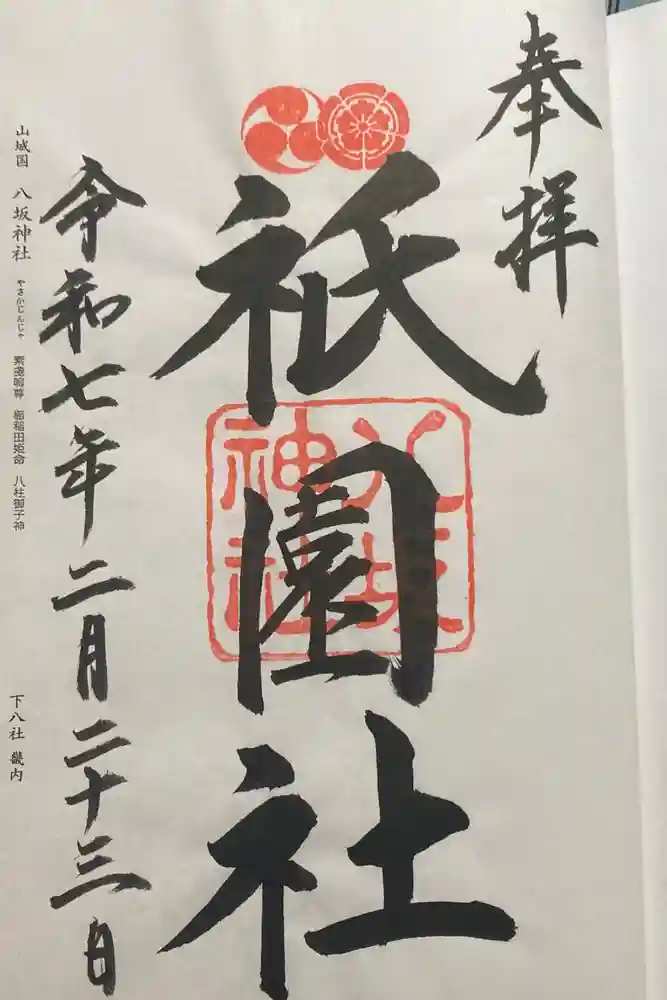 奉拝
祇園社
八坂
神社
令和七年二月二十三日
山城国 八坂神社 やさかじんじゃ 素戔嗚尊 櫛稲田姫命 八柱御子神
下八社 畿内